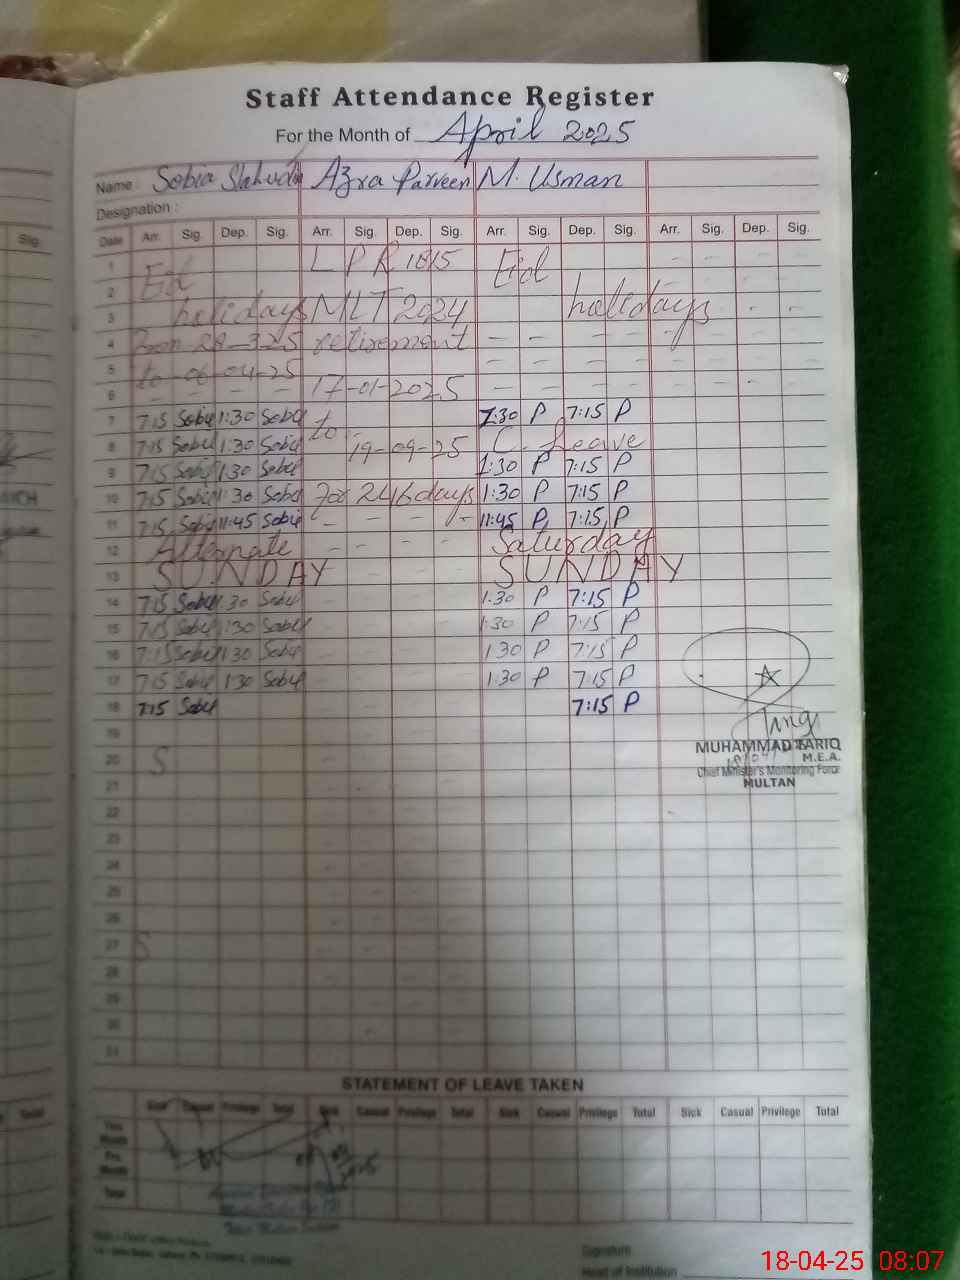 Staff Attendance Register
For the Month of April 2025
Name : Sobia Azra Parveen M. Usman
Designation :
Sig.
Date Arr. Sig. Dep. Sig. Arr. Sig. Dep. Sig. Arr. Sig. Dep. Sig. Arr. Sig. Dep. Sig.
1 LPR 1815 Eid
2 Eid
3 holidays MLT 2024 holidays
4 From 28-3-25 retirement - -
5 to 06-04-25
6 17-01-2025
7 7:15 1:30 1:30 P 7:15 P
to
8 7:15 1:30 19-09-25 C. Leave
9 7:15 1:30 1:30 P 7:15 P
10 7:15 1:30 For 246 days 1:30 P 7:15 P
11 7:15 11:45 11:45 P 7:15 P
12 Alternate Saturday
13 SUNDAY SUNDAY
14 7:15 1:30 1:30 P 7:15 P
15 7:15 1:30 1:30 P 7:15 P
16 7:15 1:30 1:30 P 7:15 P
17 7:15 1:30 1:30 P 7:15 P
18 7:15 7:15 P
19
20 S
21
22
23
24
25
26
27 S
28
29
30
31
MUHAMMAD TARIQ
M.E.A.
Chief Minister's Monitoring Force
MULTAN
STATEMENT OF LEAVE TAKEN
Sick Casual Privilege Total Sick Casual Privilege Total Sick Casual Privilege Total Sick Casual Privilege Total
Total
This Month
Pre. Month
Total
Signature
Head of Institution
18-04-25 08:07